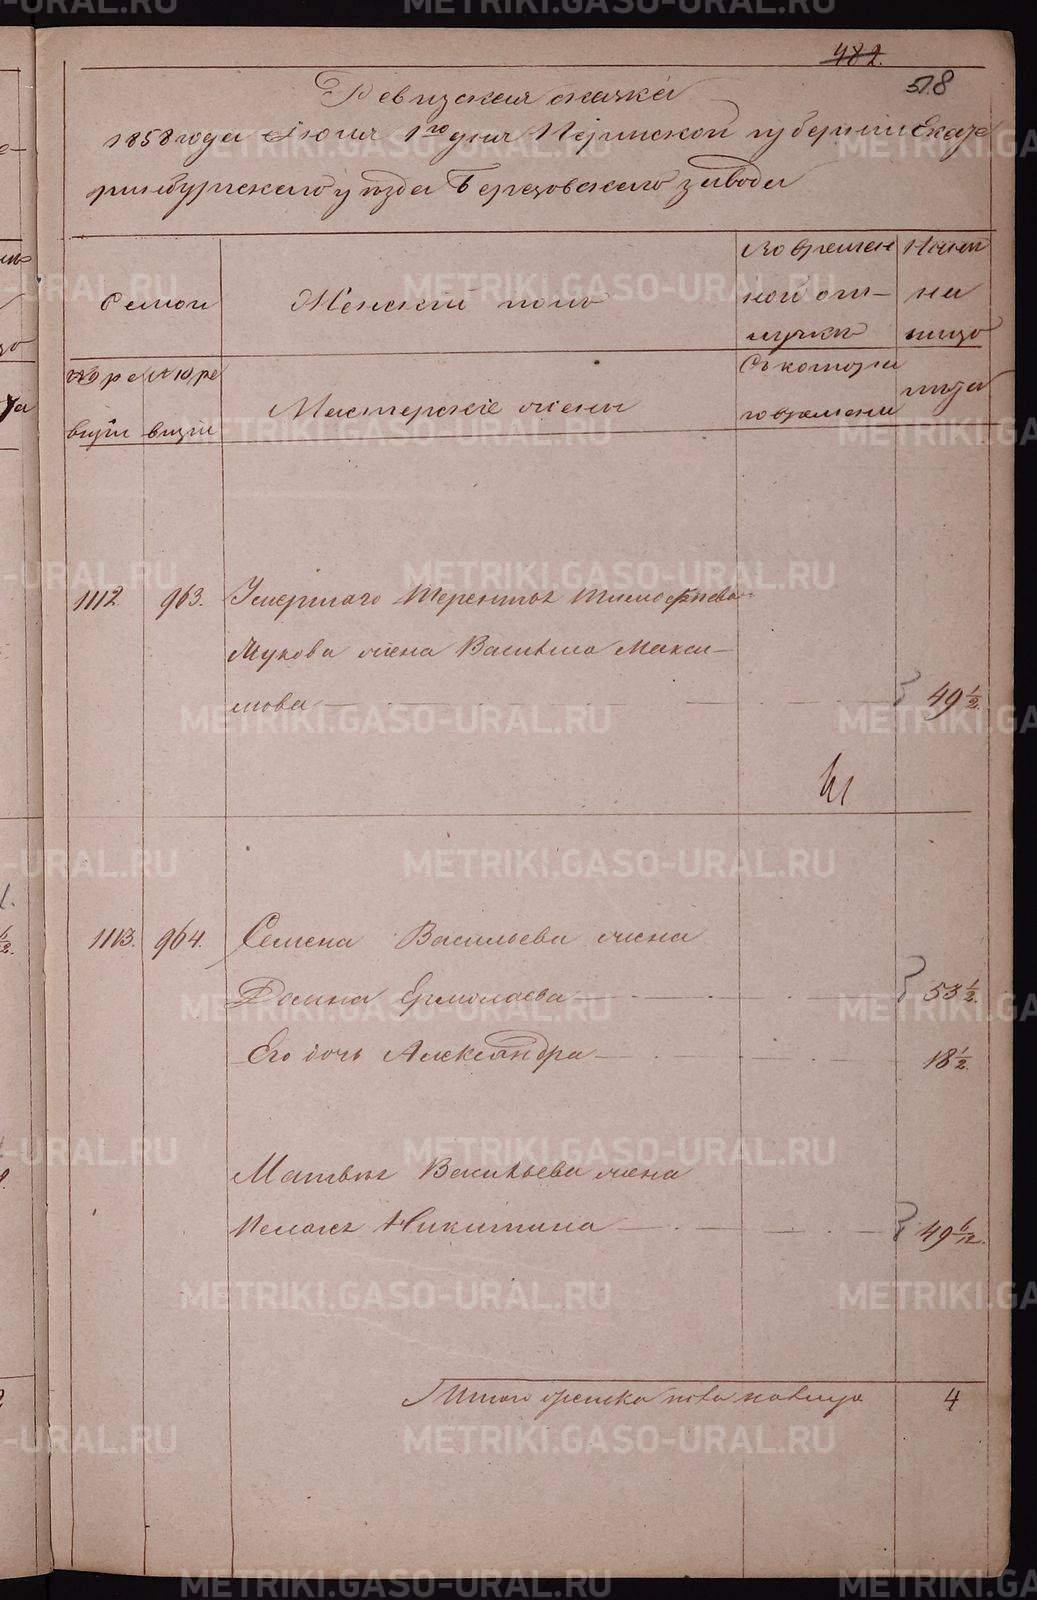 482.
518
Ревизская сказка
1858 года Июня 1го дня Пермской губернии Екате
ринбургского уезда Березовского завода
Семьи
Женский полъ
Во времен
ной от-
лучке
Ныне
на
лицо
№ 9 ре
визiи
№ 10 ре
визiи
Мастерскiе жены
Съ которо
го времени
лѣта
1112.
963.
Умершаго Терентья Тимофѣева
Жукова жена Васильа Макси-
мова
49 1/2.
1113.
964.
Семена Васильева жена
Домна Ермолаева
53 1/2.
Его дочь Александра
18 1/2.
Матвѣя Васильева жена
Пелагея Никитина
49 6/12.
Итого женска пола налицо
4
METRIKI.GASO-URAL.RU